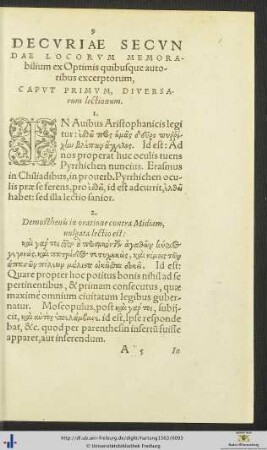 9
DECVRIAE SECVN
DAE LOCORVM MEMORA-
bilium ex Optimis quibusque auto-
ribus excerptorum,
CAPVT PRIMVM, DIVERSA-
rum lectionum.
1.
IN Auibus Aristophanicis legi
tur:
Id est: Ad
nos properat huc oculis tuens
Pyrrhichen nuncius. Erasmus
in Chiliadibus, in prouerb. Pyrrhichen ocu-
lis præ se ferens, pro id est adcurrit,
habet: sed illa lectio sanior.
2.
Demosthenis in oratione contra Midiam,
uulgata lectio est:
Id est:
Quare propter hoc potius bonis nihil ad se
pertinentibus, & primam consecutus, quæ
maximè omnium ciuitatum legibus guber-
natur. Moscopulus, post subij-
cit, id est, ipse responde
bat, &c. quod per parenthesin insertũ fuisse
apparet, aut inserendum.
A 5 In
http://dl.ub.uni-freiburg.de/diglit/hartung1563/0093
© Universitätsbibliothek Freiburg